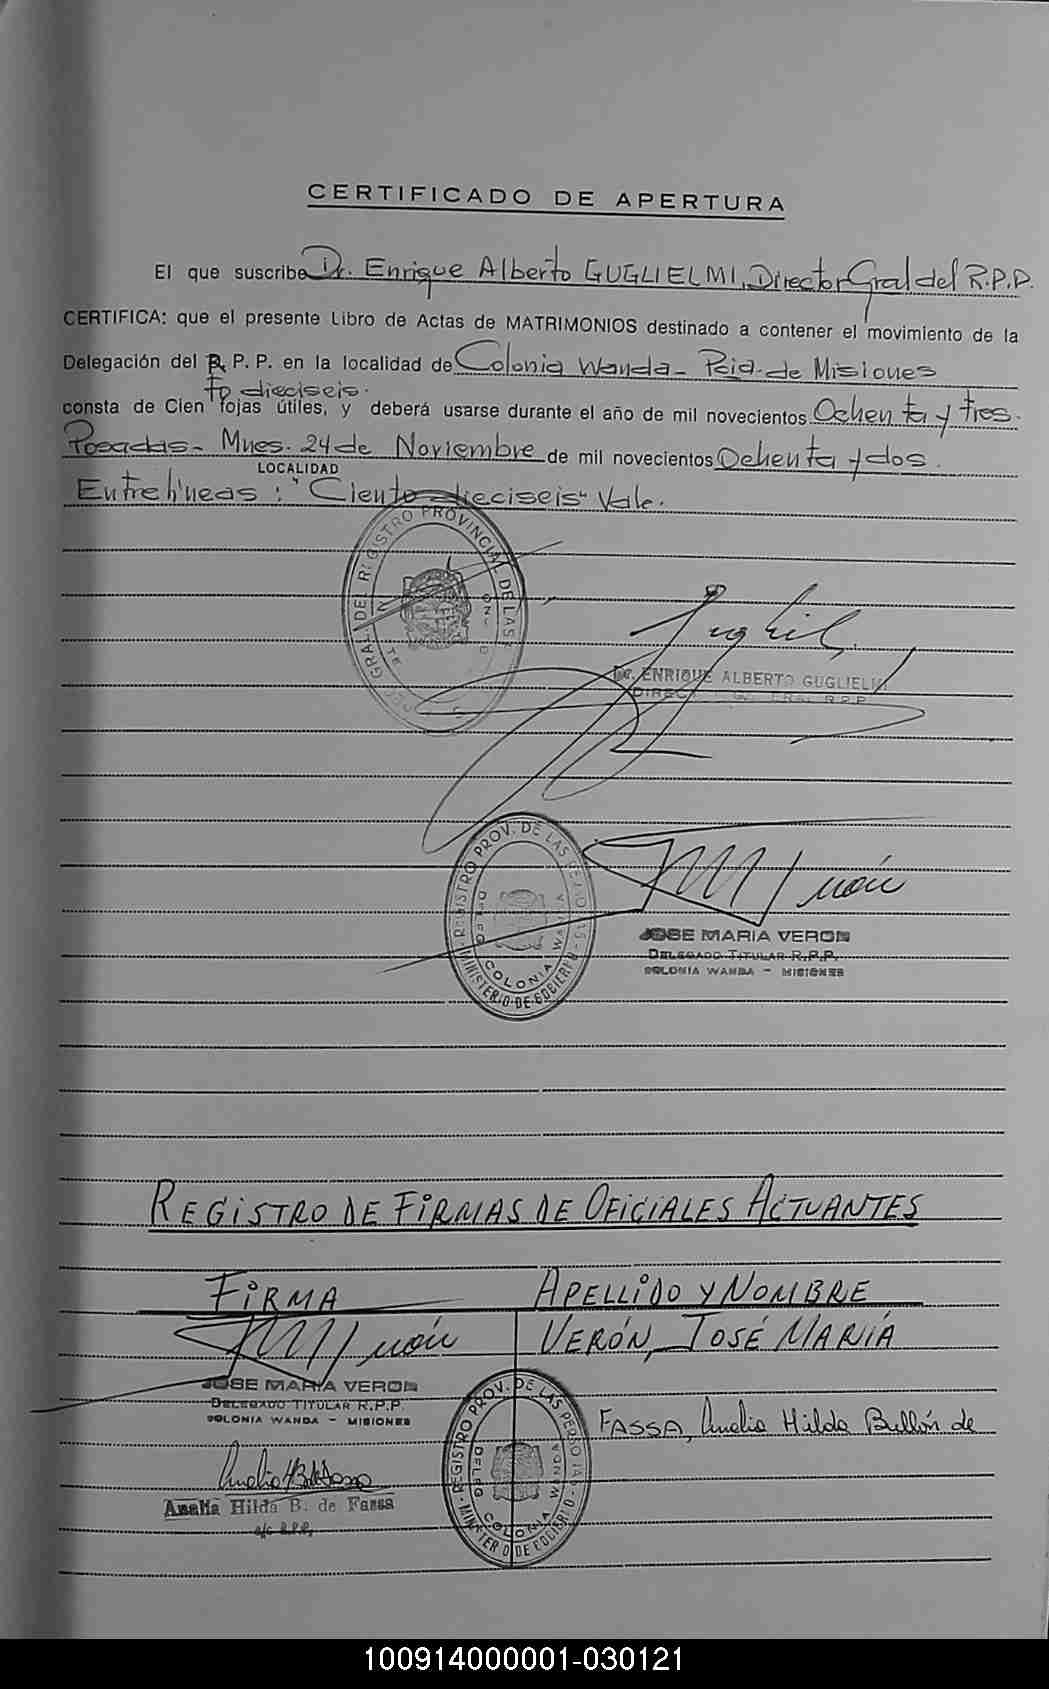 CERTIFICADO DE APERTURA
El que suscribe Dr. Enrique Alberto GUGLIELMI, Director Gral del R.P.P.
CERTIFICA: que el presente Libro de Actas de MATRIMONIOS destinado a contener el movimiento de la
Delegación del R. P. P. en la localidad de Colonia Wanda - Pcia. de Misiones
dieciseis.
consta de Cien fojas útiles, y deberá usarse durante el año de mil novecientos Ochenta y tres.
Posadas - Mnes. 24 de Noviembre de mil novecientos Ochenta y dos.
LOCALIDAD
Entrelíneas: "Ciento dieciseis" Vale.
GRAL. DEL REGISTRO PROVINCIAL DE LAS
Dr. ENRIQUE ALBERTO GUGLIELMI
R.P.P.
REGISTRO PROV. DE LAS PERSONAS - MINISTERIO DE GOBIERNO
DELEG. COLONIA WANDA
JOSE MARIA VERON
DELEGADO TITULAR R.P.P.
COLONIA WANDA - MISIONES
REGISTRO DE FIRMAS DE OFICIALES ACTUANTES
FIRMA APELLIDO Y NOMBRE
VERÓN, JOSÉ MARÍA
JOSE MARIA VERON
DELEGADO TITULAR R.P.P.
COLONIA WANDA - MISIONES
FASSA, Amalia Hilda Bullón de
REGISTRO PROV. DE LAS PERSONAS - MINISTERIO DE GOBIERNO
DELEG. COLONIA WANDA
Amalia Hilda B. de Fassa
a/c R.P.P.
100914000001-030121